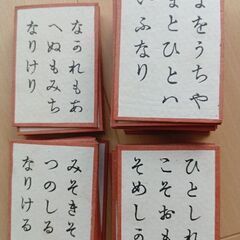 なかれもあ
へぬもみち
なりけり
よをうちや
まとひとは
いふなり
みそきそ
つのしる
なりける
ひとしれ
こそおも
そめし